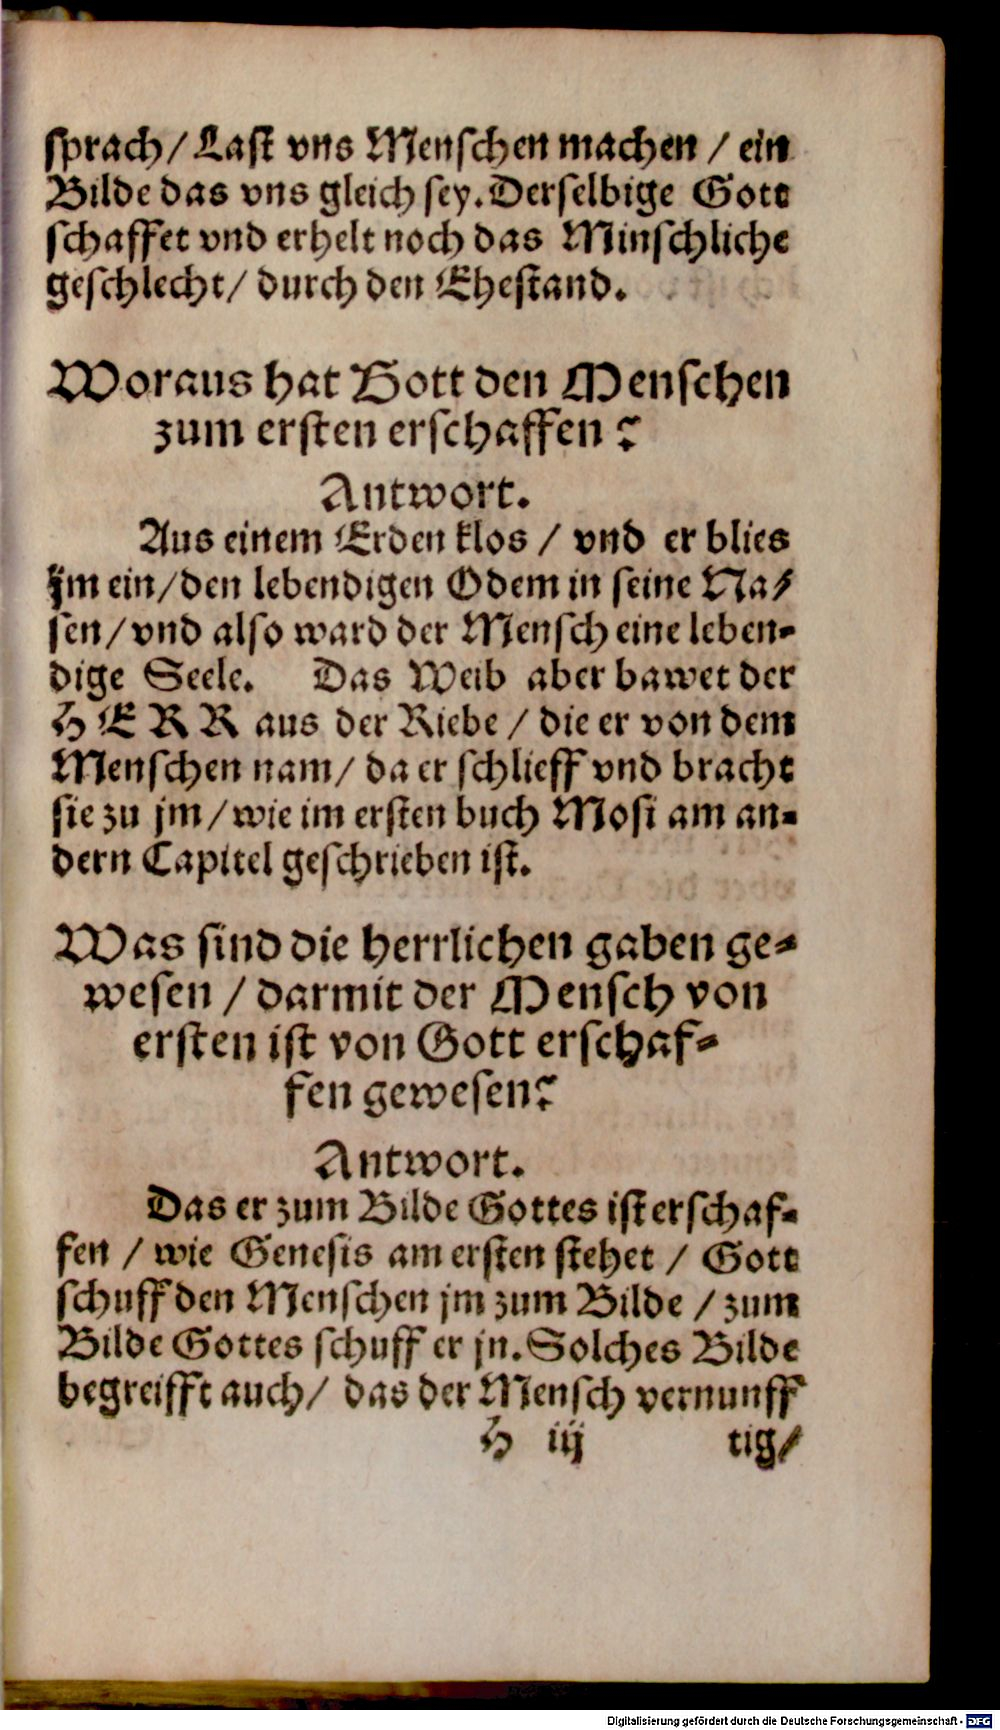 sprach/ Last vns Menschen machen / ein
Bilde das vns gleich sey. Derselbige Gott
schaffet vnd erhelt noch das Minschliche
geschlecht/ durch den Ehestand.
Woraus hat Gott den Menschen
zum ersten erschaffen?
Antwort.
Aus einem Erden klos / vnd er blies
jm ein/den lebendigen Odem in seine Na/
sen/vnd also ward der Mensch eine leben-
dige Seele. Das Weib aber bawet der
HERR aus der Riebe / die er von dem
Menschen nam/ da er schlieff vnd bracht
sie zu jm/wie im ersten buch Mosi am an-
dern Capitel geschrieben ist.
Was sind die herrlichen gaben ge-
wesen / darmit der Mensch von
ersten ist von Gott erschaf-
fen gewesen?
Antwort.
Das er zum Bilde Gottes ist erschaf-
fen / wie Genesis am ersten stehet / Gott
schuff den Menschen jm zum Bilde / zum
Bilde Gottes schuff er jn. Solches Bilde
begreifft auch/ das der Mensch vernunff
H iij tig/
Digitalisierung gefördert durch die Deutsche Forschungsgemeinschaft - DFG